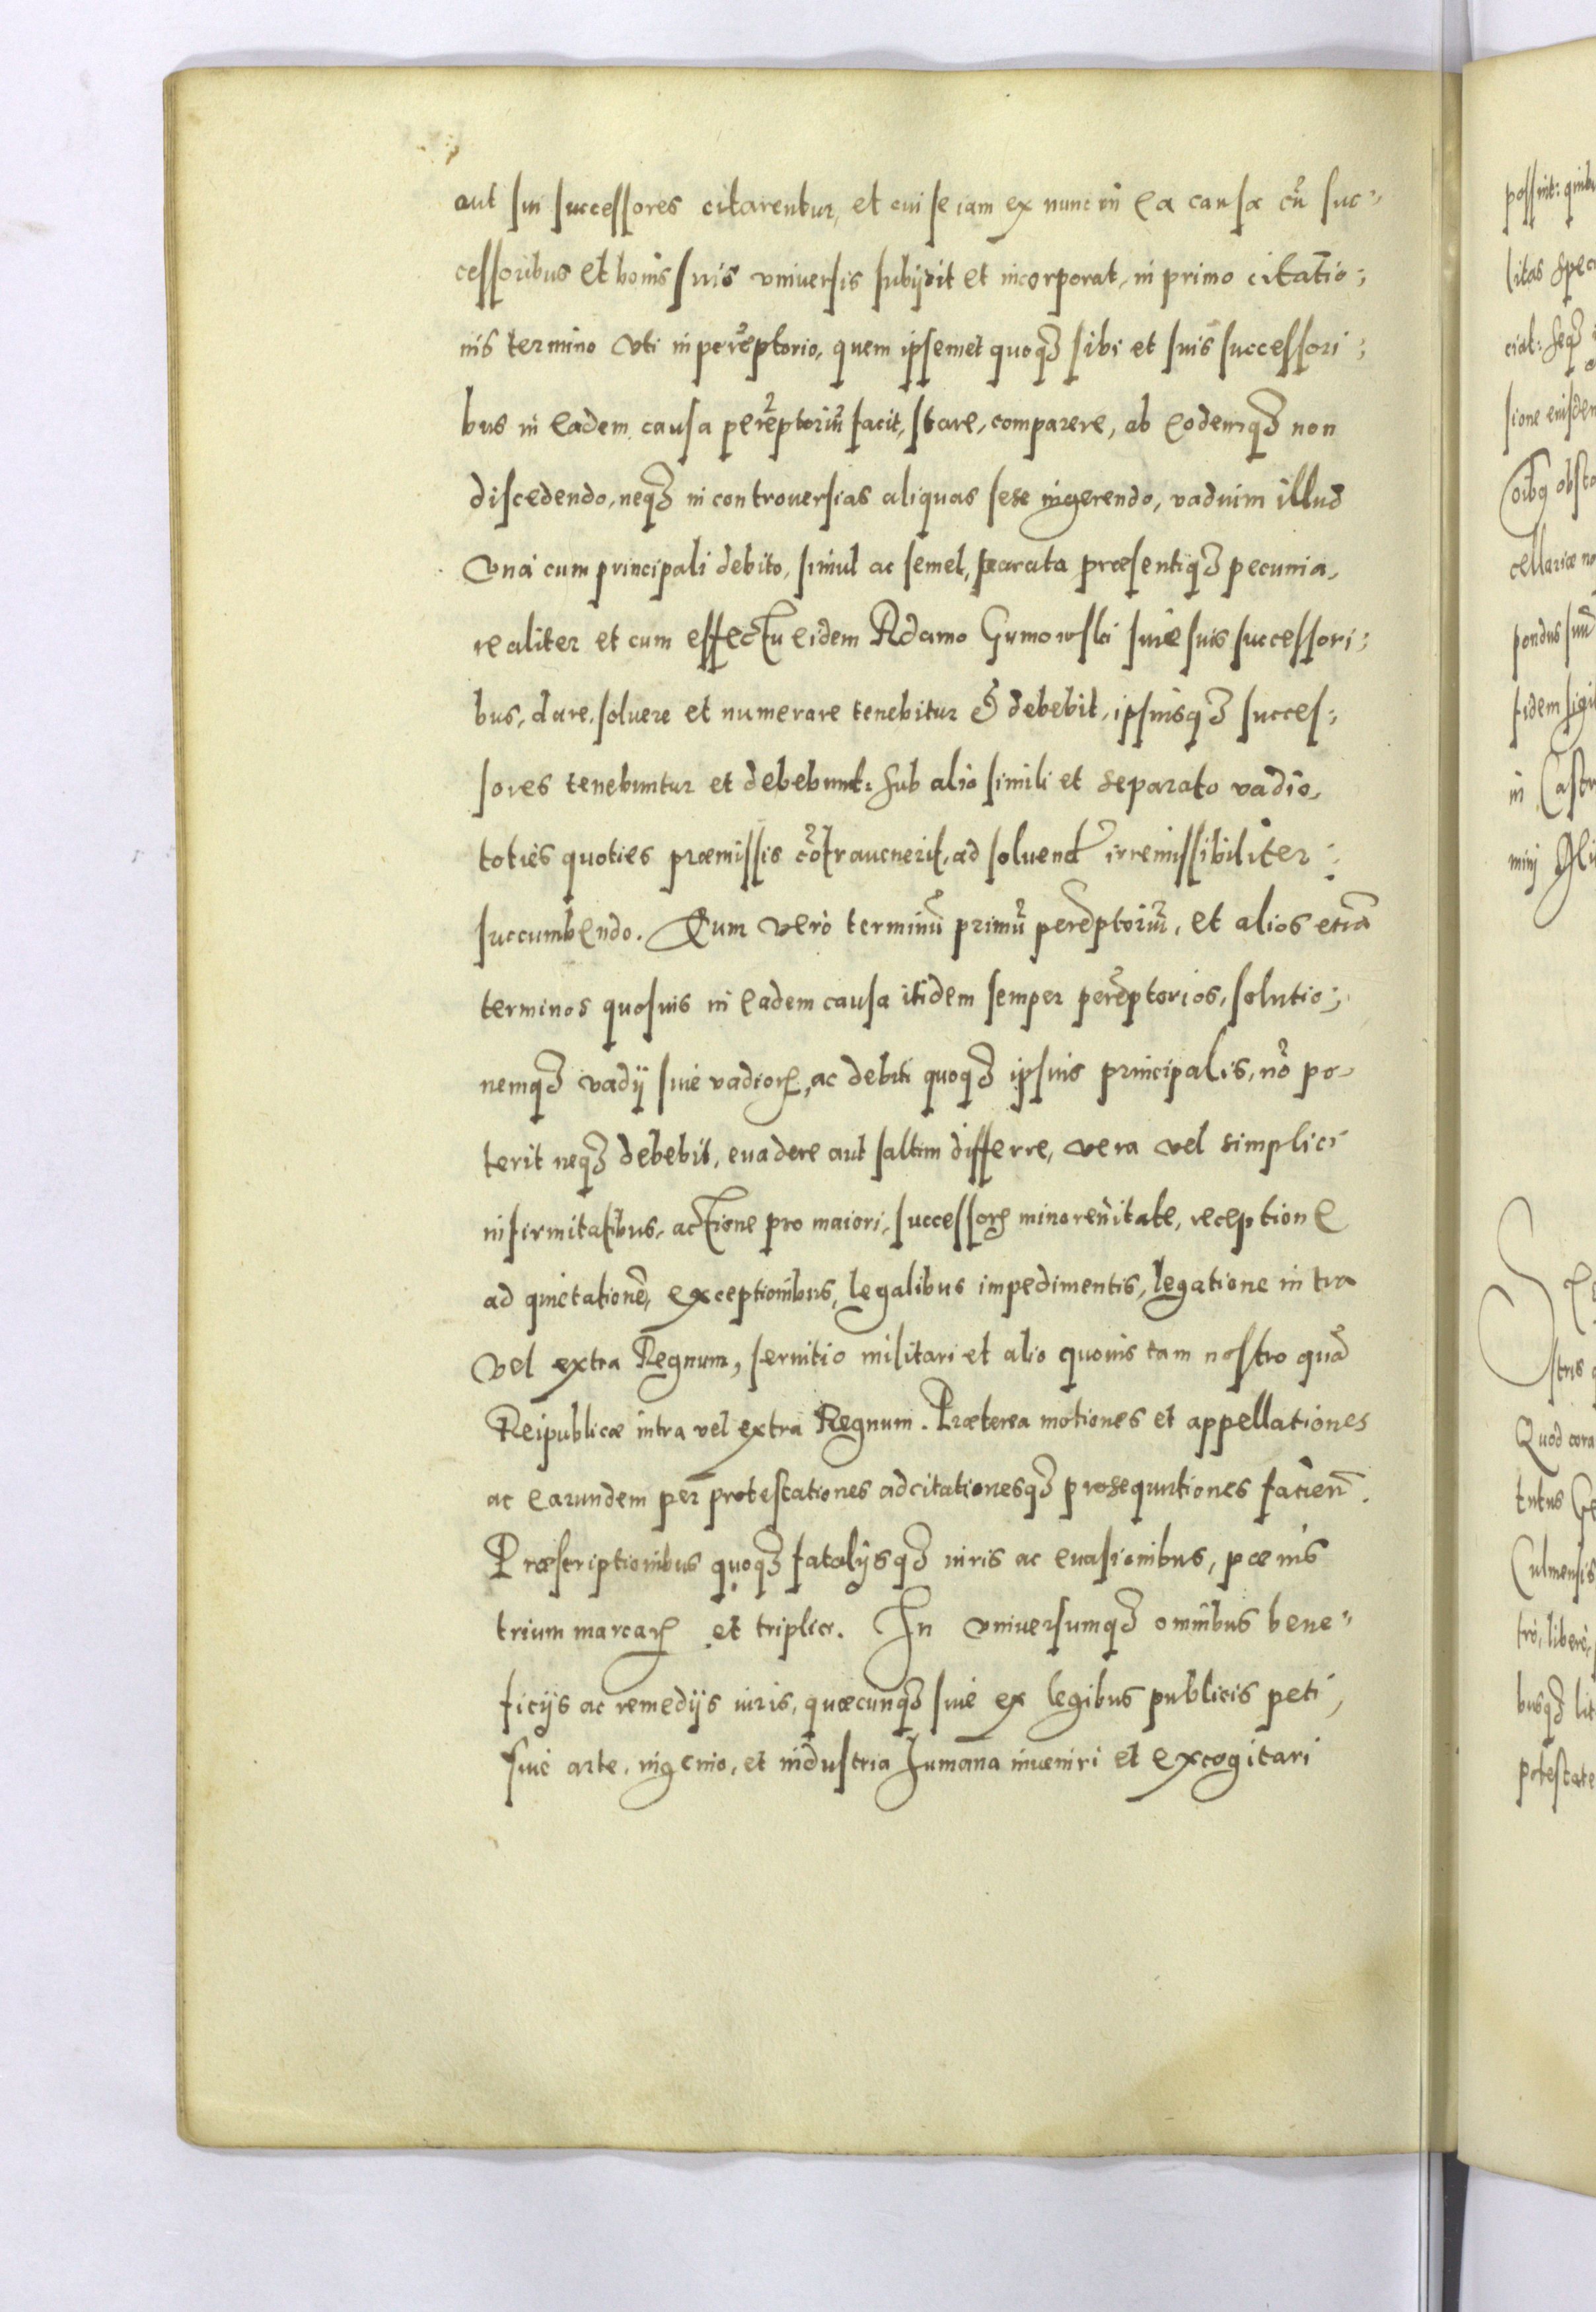 aut sui successores citarentur, et cui se iam ex nunc in ea causa cū suc-
cessoribus et bonis suis vniuersis subijcit et incorporat, in primo citatio-
nis termino vti in perēptorio, quem ipsemet quoq3 sibi et suis successori-
bus in eadem causa perēptoriū facit, stare, comparere, ab eodemq3 non
discedendo, neq3 in controuersias aliquas sese ingerendo, vadium illud
vnà cum principali debito, simul ac semel, parata præsentiq3 pecunia,
realiter et cum effectu eidem Adamo Gumowski siue suis successori-
bus, dare, soluere et numerare tenebitur & debebit, ipsiusq3 succes-
sores tenebuntur et debebunt: sub alio simili et separato vadio,
toties quoties præmissis cōtrauenerit, ad soluend irremissibiliter
succumbendo. Quem verò terminū primū perēptoriū, et alios etiā
terminos quosuis in eadem causa itidem semper perēptorios, solutio-
nemq3 vadij siue vadiorꝝ, ac debiti quoq3 ipsius principalis, nō po-
terit neq3 debebit, euadere aut saltim differre, vera vel simplici
infirmitatibus, actione pro maiori, successorꝝ minorēnitate, receptione
ad quietationē, exceptionibus, legalibus impedimentis, legatione intra
vel extra Regnum, seruitio militari et alio quouis tam nostro quā
Reipublicæ intra vel extra Regnum. Præterea motiones et appellationes
ac earundem per protestationes adcitationesq3 prosequutiones facien̄.
Præscriptionibus quoq3 fatalijsq3 iuris ac euasionibus, pœnis
trium marcarꝝ et triplici. In vniuersumq3 omnibus bene-
ficijs ac remedijs iuris, quæcunq3 siue ex legibus publicis peti,
siue arte, ingenio, et industria humana inueniri et excogitari
possint:
litas
ciat: seq3
sione eiusdem
cellariæ
pondus
fidem
in Castr
Quod cora
tutus
Culmensis
trò, liberè,
busq3 lit
potestate